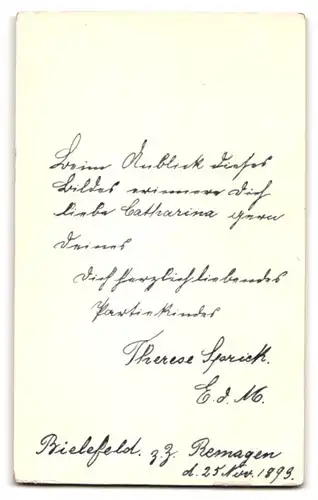 Beim Anblick dieses
Bildes erinnere Dich
liebe Catharina gern
Deines
Dich herzlich liebendes
Partiekindes
Therese Sprick.
E. d. M.
Bielefeld. z. Z. Remagen
d. 25 Nov. 1893.